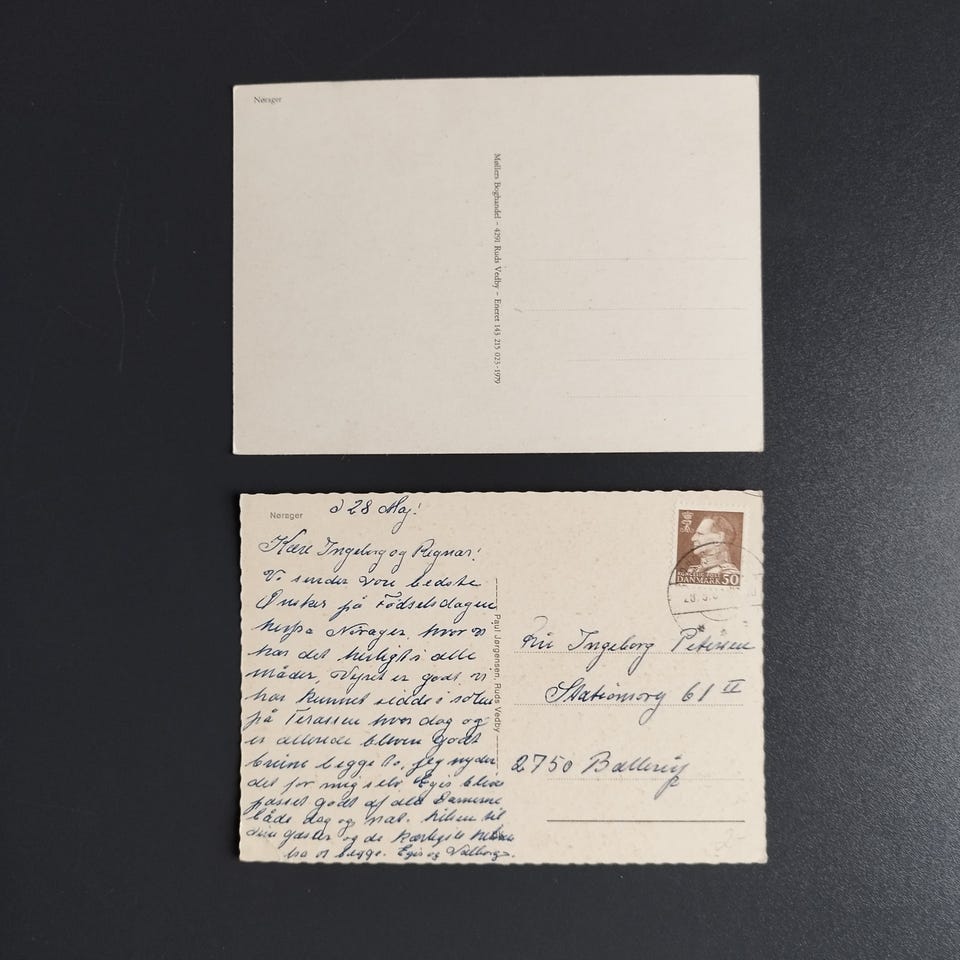 Nørager
Møllers Boghandel - 4291 Ruds Vedby - Eneret 143 215 023-1979
Nørager
d 28 Maj!
Kære Ingeborg og Regnar!
Vi sender vore bedste
Ønsker på Fødselsdagen
herfra Nørager, hvor vi
har det herligt i alle
måder, Vejret er godt, vi
har kunnet sidde i solen
på Terassen hver dag og
er allerede bleven godt
brune begge to, jeg nyder
det for mig selv, Egis bliver
passet godt af alle Damerne
både dag og nat. hilsen til
dine gæster og de kærligste hilsen
fra os begge. Egis og Valborg.
Paul Jørgensen, Ruds Vedby
DANMARK 50
Fru Ingeborg Petersen
Stationsvej 61 II
2750 Ballerup